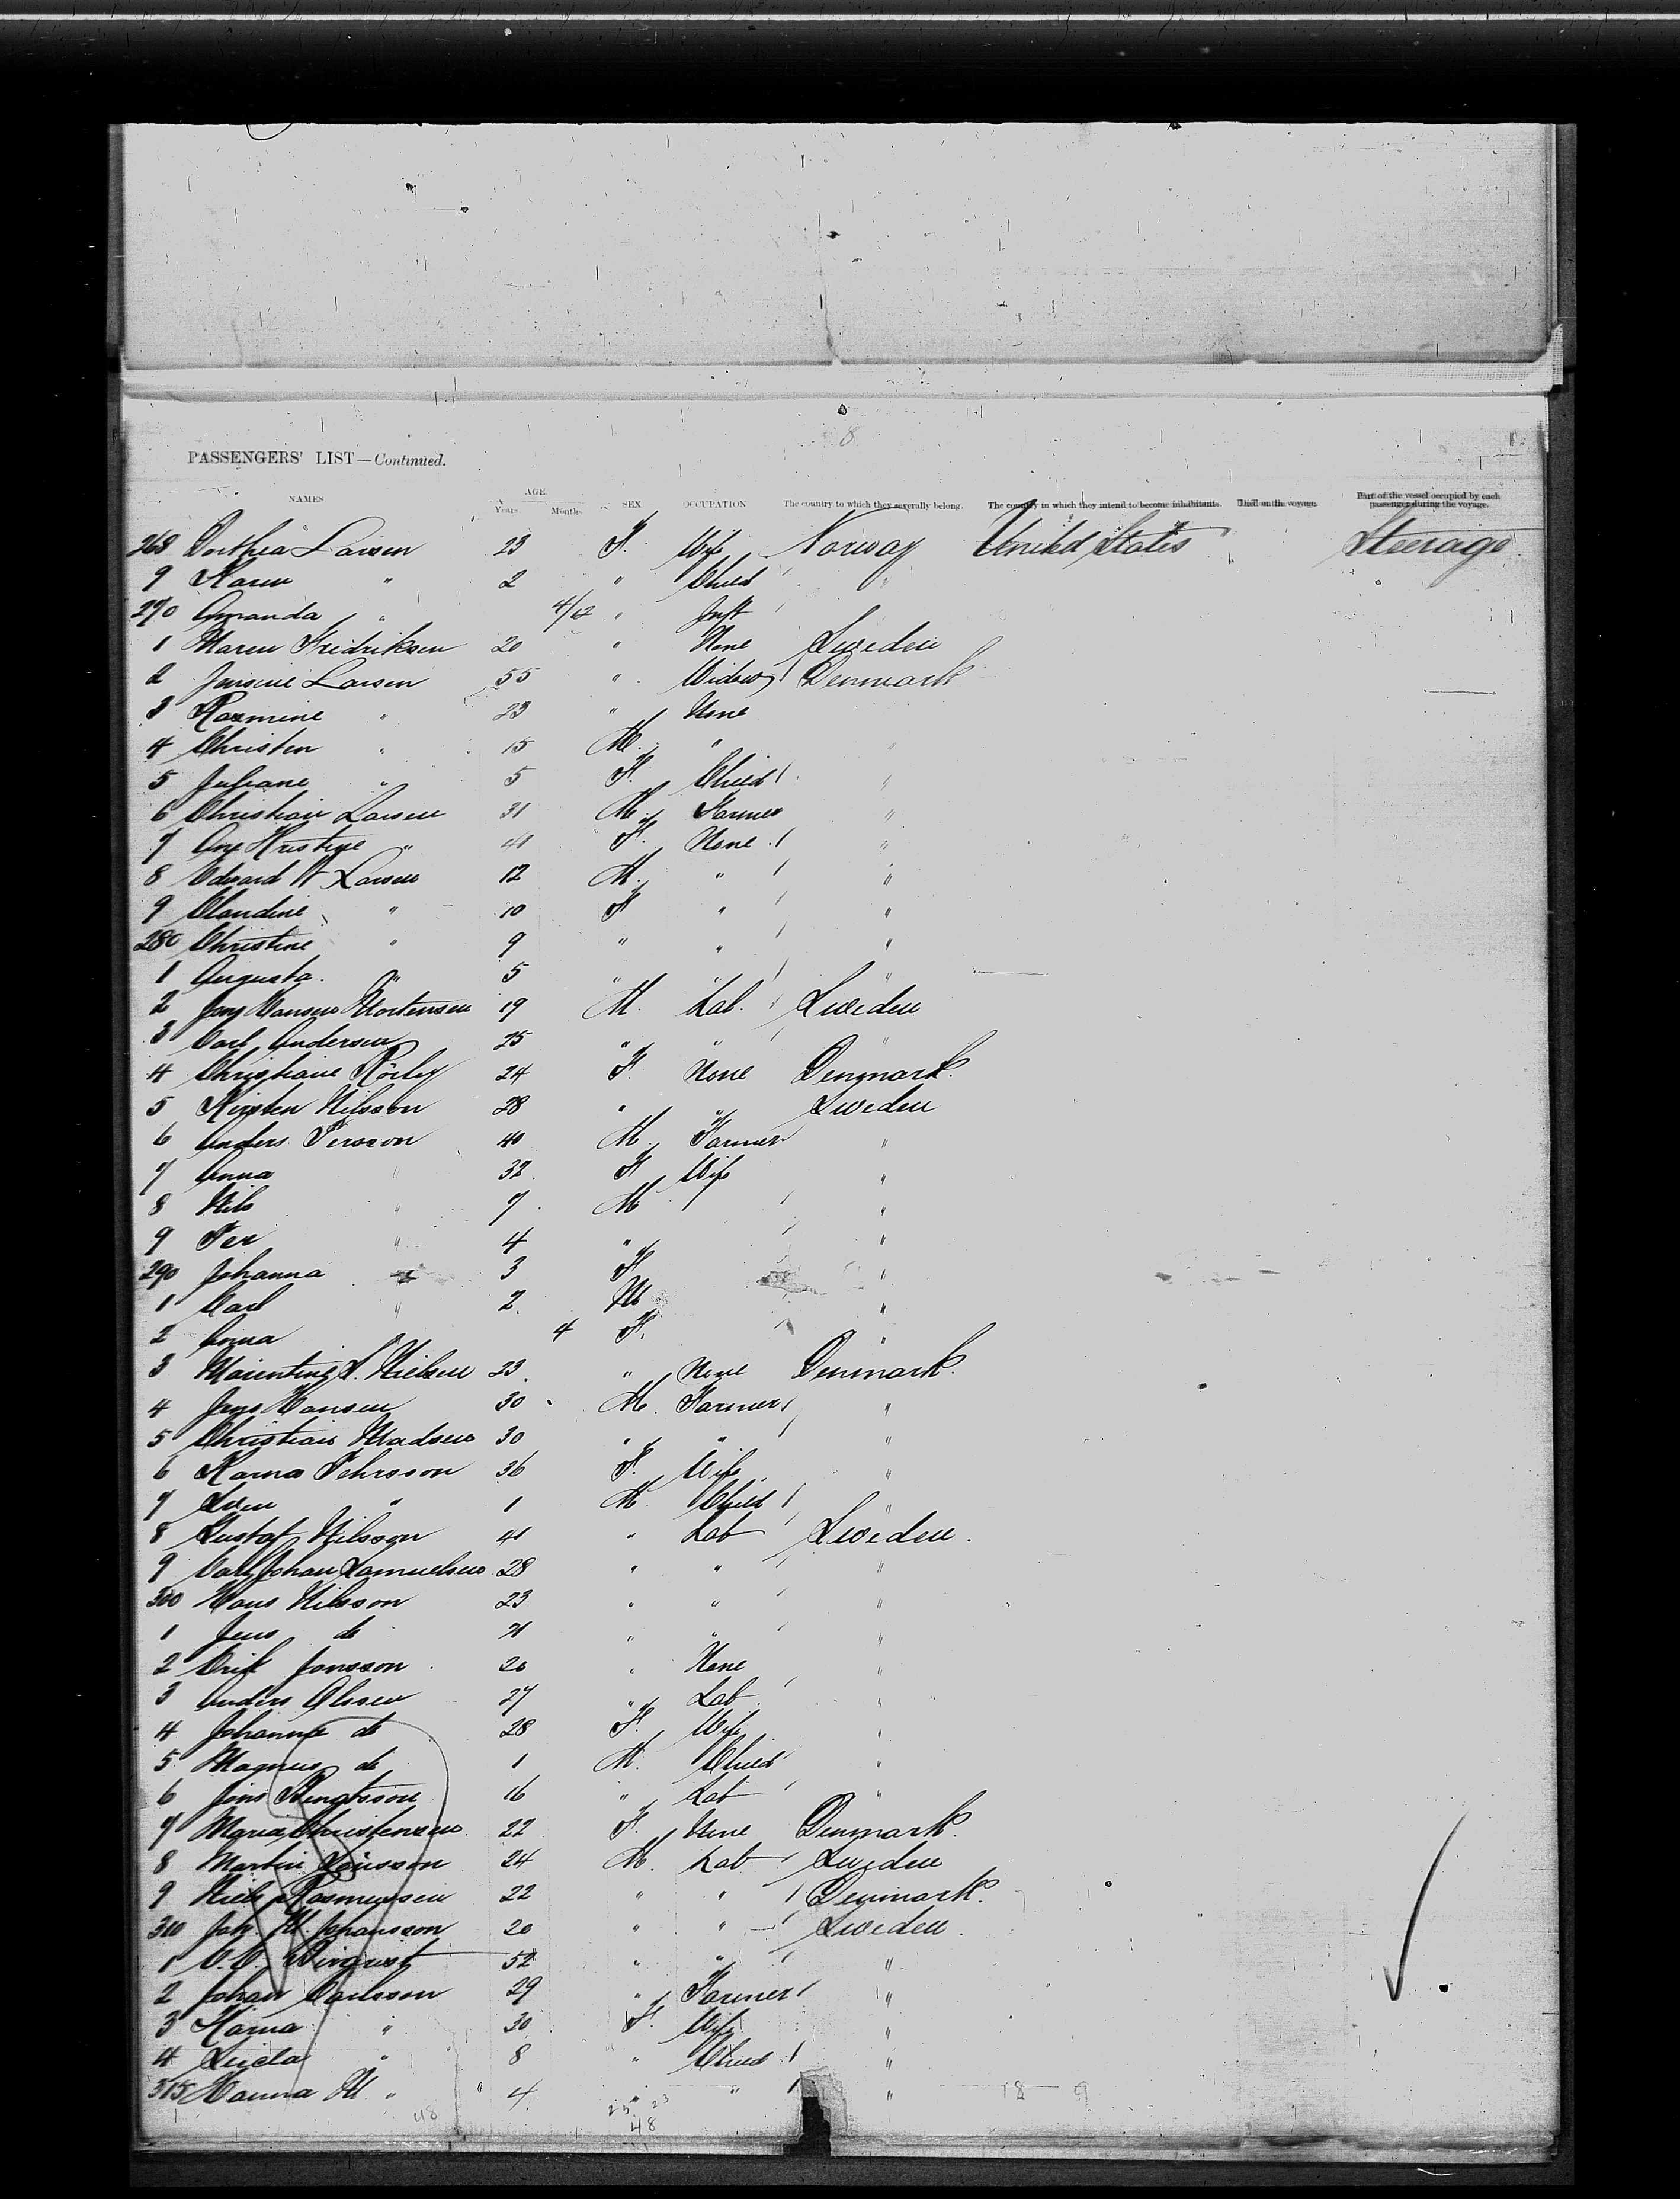 8
PASSENGERS' LIST—Continued.
NAMES AGE Years Months SEX OCCUPATION The country to which they severally belong. The country in which they intend to become inhabitants. Died on the voyage. Part of the vessel occupied by each passenger during the voyage.
268 Dorthea Larsen 23 F. Wife Norway United States Steerage
9 Karen " 2 " Child "
270 Amanda " 4/12 " Inft
1 Maren Fredriksen 20 " None Sweden
2 Jensine Larsen 55 " Widow Denmark
3 Rasmine " 23 " None
4 Christen " 15 M. " "
5 Juliane " 5 F. Child "
6 Christian Larsen 31 M. Farmer "
7 Ane Kristine " 41 F. None "
8 Edvard H Larsen 12 M. " "
9 Claudine " 10 F " "
280 Christine " 9 " " "
1 Augusta " 5 " " "
2 Jens Hansen Mortensen 19 M. Lab. Sweden
3 Carl Andersen 25 " " "
4 Christiane 24 F. None Denmark.
5 Kirsten Nilsson 28 " " Sweden
6 Anders Persson 40 M. Farmer "
7 Anna " 32 F Wife "
8 Nils " 7 M "
9 Per " 4 " "
290 Johanna " 3 F "
1 Carl " 2 M "
2 Anna 4 F. "
3 L. Nielsen 23 " None Denmark.
4 Jens Hansen 30 M. Farmer "
5 Christian Madsen 30 " " "
6 Karna Pehrsson 36 F. Wife "
7 Sven " 1 M. Child "
8 Gustaf Nilsson 41 " Lab Sweden.
9 Carl Johan Samuelsen 28 " " "
300 Hans Nilsson 23 " " "
1 Jens do 21 " " "
2 Erik Jonsson 20 " None "
3 Anders Olssen 27 " Lab "
4 Johanna do 28 F. Wife "
5 Magnus do 1 M. Child "
6 Jöns Bengtsson 16 " Lab "
7 Maria Christensen 22 F. None Denmark.
8 Martin Jönsson 24 M. Lab Sweden
9 Niels Rasmussen 22 " " Denmark.
310 Joh. M. Johansson 20 " " Sweden.
1 52 " " "
2 Johan Carlsson 29 " Farmer "
3 Hanna " 30 F. Wife "
4 " 8 " Child "
315 Hanna M. " 4 " " "
48 25 23 18 9
48